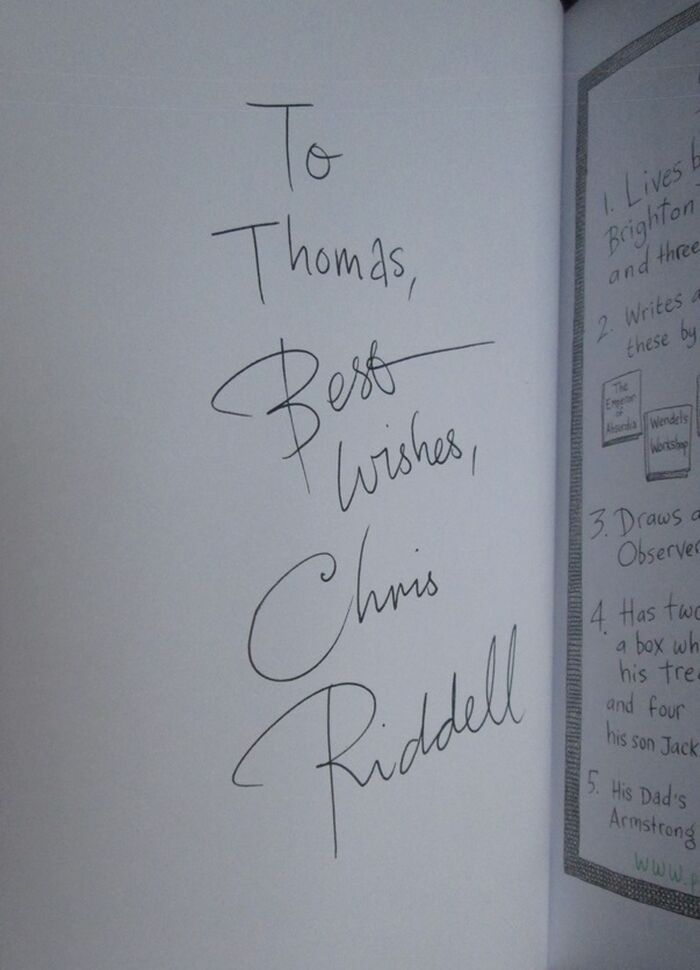 To
Thomas,
Best
Wishes,
Chris
Riddell
1. Lives b
Brighton
and three
2. Writes a
these by
The
Emperor
of
Absurdia
Wendel's
Workshop
3. Draws a
Observer
4. Has two
a box wh
his trea
and four
his son Jack
5. His Dad's
Armstrong
www.p